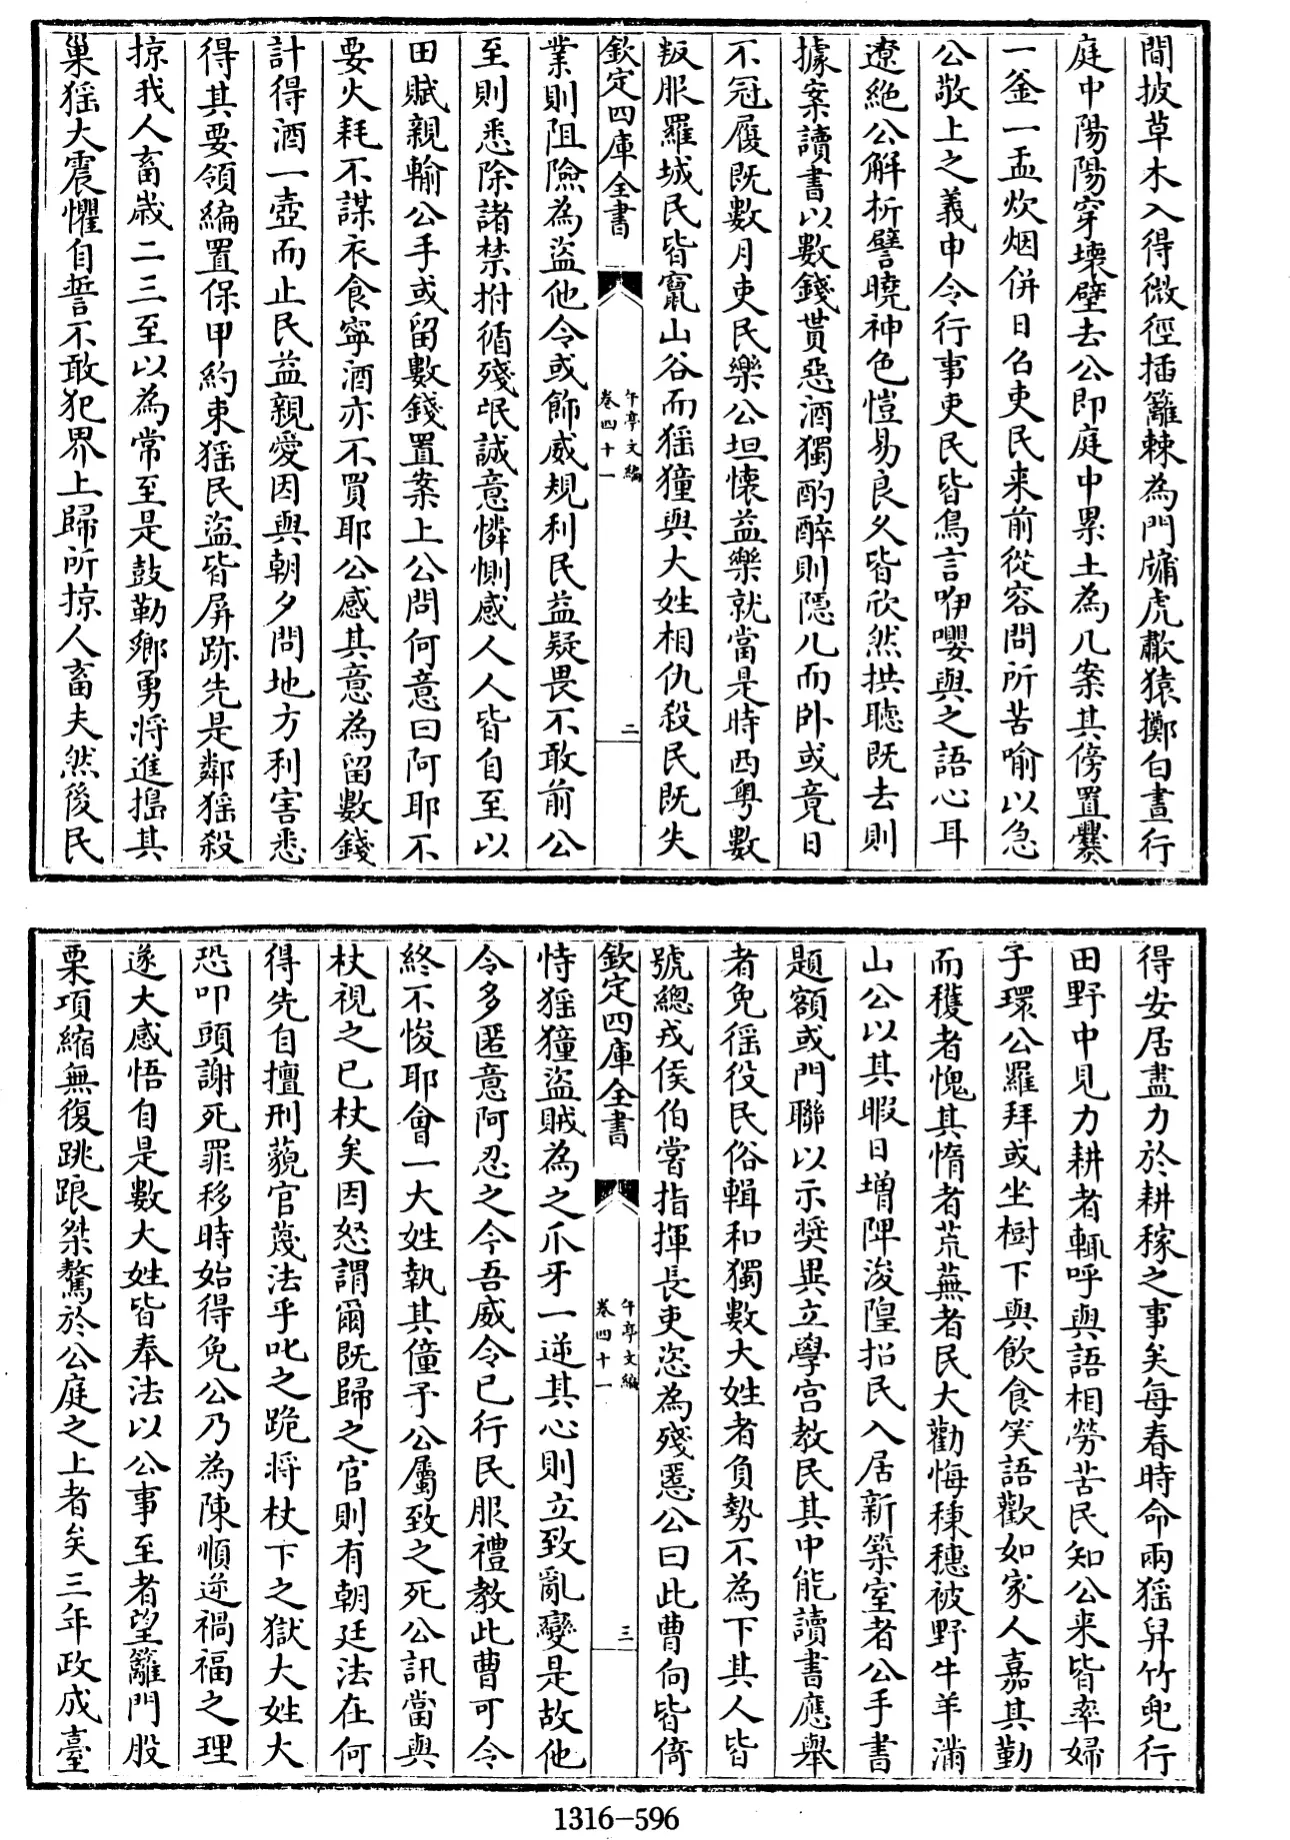 間披草木入得微徑插籬棘為門牖虎歗猿擲白晝行
庭中陽陽穿壊壁去公即庭中累土為几案其傍置爨
一釜一盂炊烟併日召吏民来前從容問所苦喻以急
公敬上之義申令行事吏民皆鳥言咿嚶與之語心耳
遼絶公解析譬曉神色愷易良久皆欣然拱聽既去則
據案讀書以數錢貰惡酒獨酌醉則隱几而卧或竟日
不冠履既數月吏民樂公坦懷益樂就當是時西粤數
叛服羅城民皆竄山谷而猺獞與大姓相仇殺民既失
欽定四庫全書
午亭文編
卷四十一
二
業則阻險為盜他令或飾威規利民益疑畏不敢前公
至則悉除諸禁拊循殘氓誠意憐惻感人人皆自至以
田賦親輸公手或留數錢置案上公問何意曰阿耶不
要火耗不謀衣食寧酒亦不買耶公感其意為留數錢
計得酒一壺而止民益親愛因與朝夕問地方利害悉
得其要領編置保甲約束猺民盜皆屏跡先是鄰猺殺
掠我人畜歲二三至以為常至是鼓勒鄉勇將進搗其
巢猺大震懼自誓不敢犯界上歸所掠人畜夫然後民
得安居盡力於耕稼之事矣每春時命兩猺舁竹兜行
田野中見力耕者輒呼與語相勞苦民知公来皆率婦
子環公羅拜或坐樹下與飲食笑語歡如家人嘉其勤
而穫者愧其惰者荒蕪者民大勸悔稑穗被野牛羊滿
山公以其暇日增陴浚隍招民入居新築室者公手書
題額或門聯以示奬異立學宫教民其中能讀書應舉
者免徭役民俗輯和獨數大姓者負勢不為下其人皆
號總戎侯伯嘗指揮長吏恣為殘慝公曰此曹向皆倚
欽定四庫全書
午亭文編
卷四十一
三
恃猺獞盜賊為之爪牙一逆其心則立致亂變是故他
令多匿意阿忍之今吾威令已行民服禮教此曹可令
終不悛耶會一大姓執其僮予公屬致之死公訊當與
杖視之已杖矣因怒謂爾既歸之官則有朝廷法在何
得先自擅刑藐官蔑法乎叱之跪將杖下之獄大姓大
恐叩頭謝死罪移時始得免公乃為陳順逆禍福之理
遂大感悟自是數大姓皆奉法以公事至者望籬門股
栗項縮無復跳踉桀驁於公庭之上者矣三年政成臺
1316-596